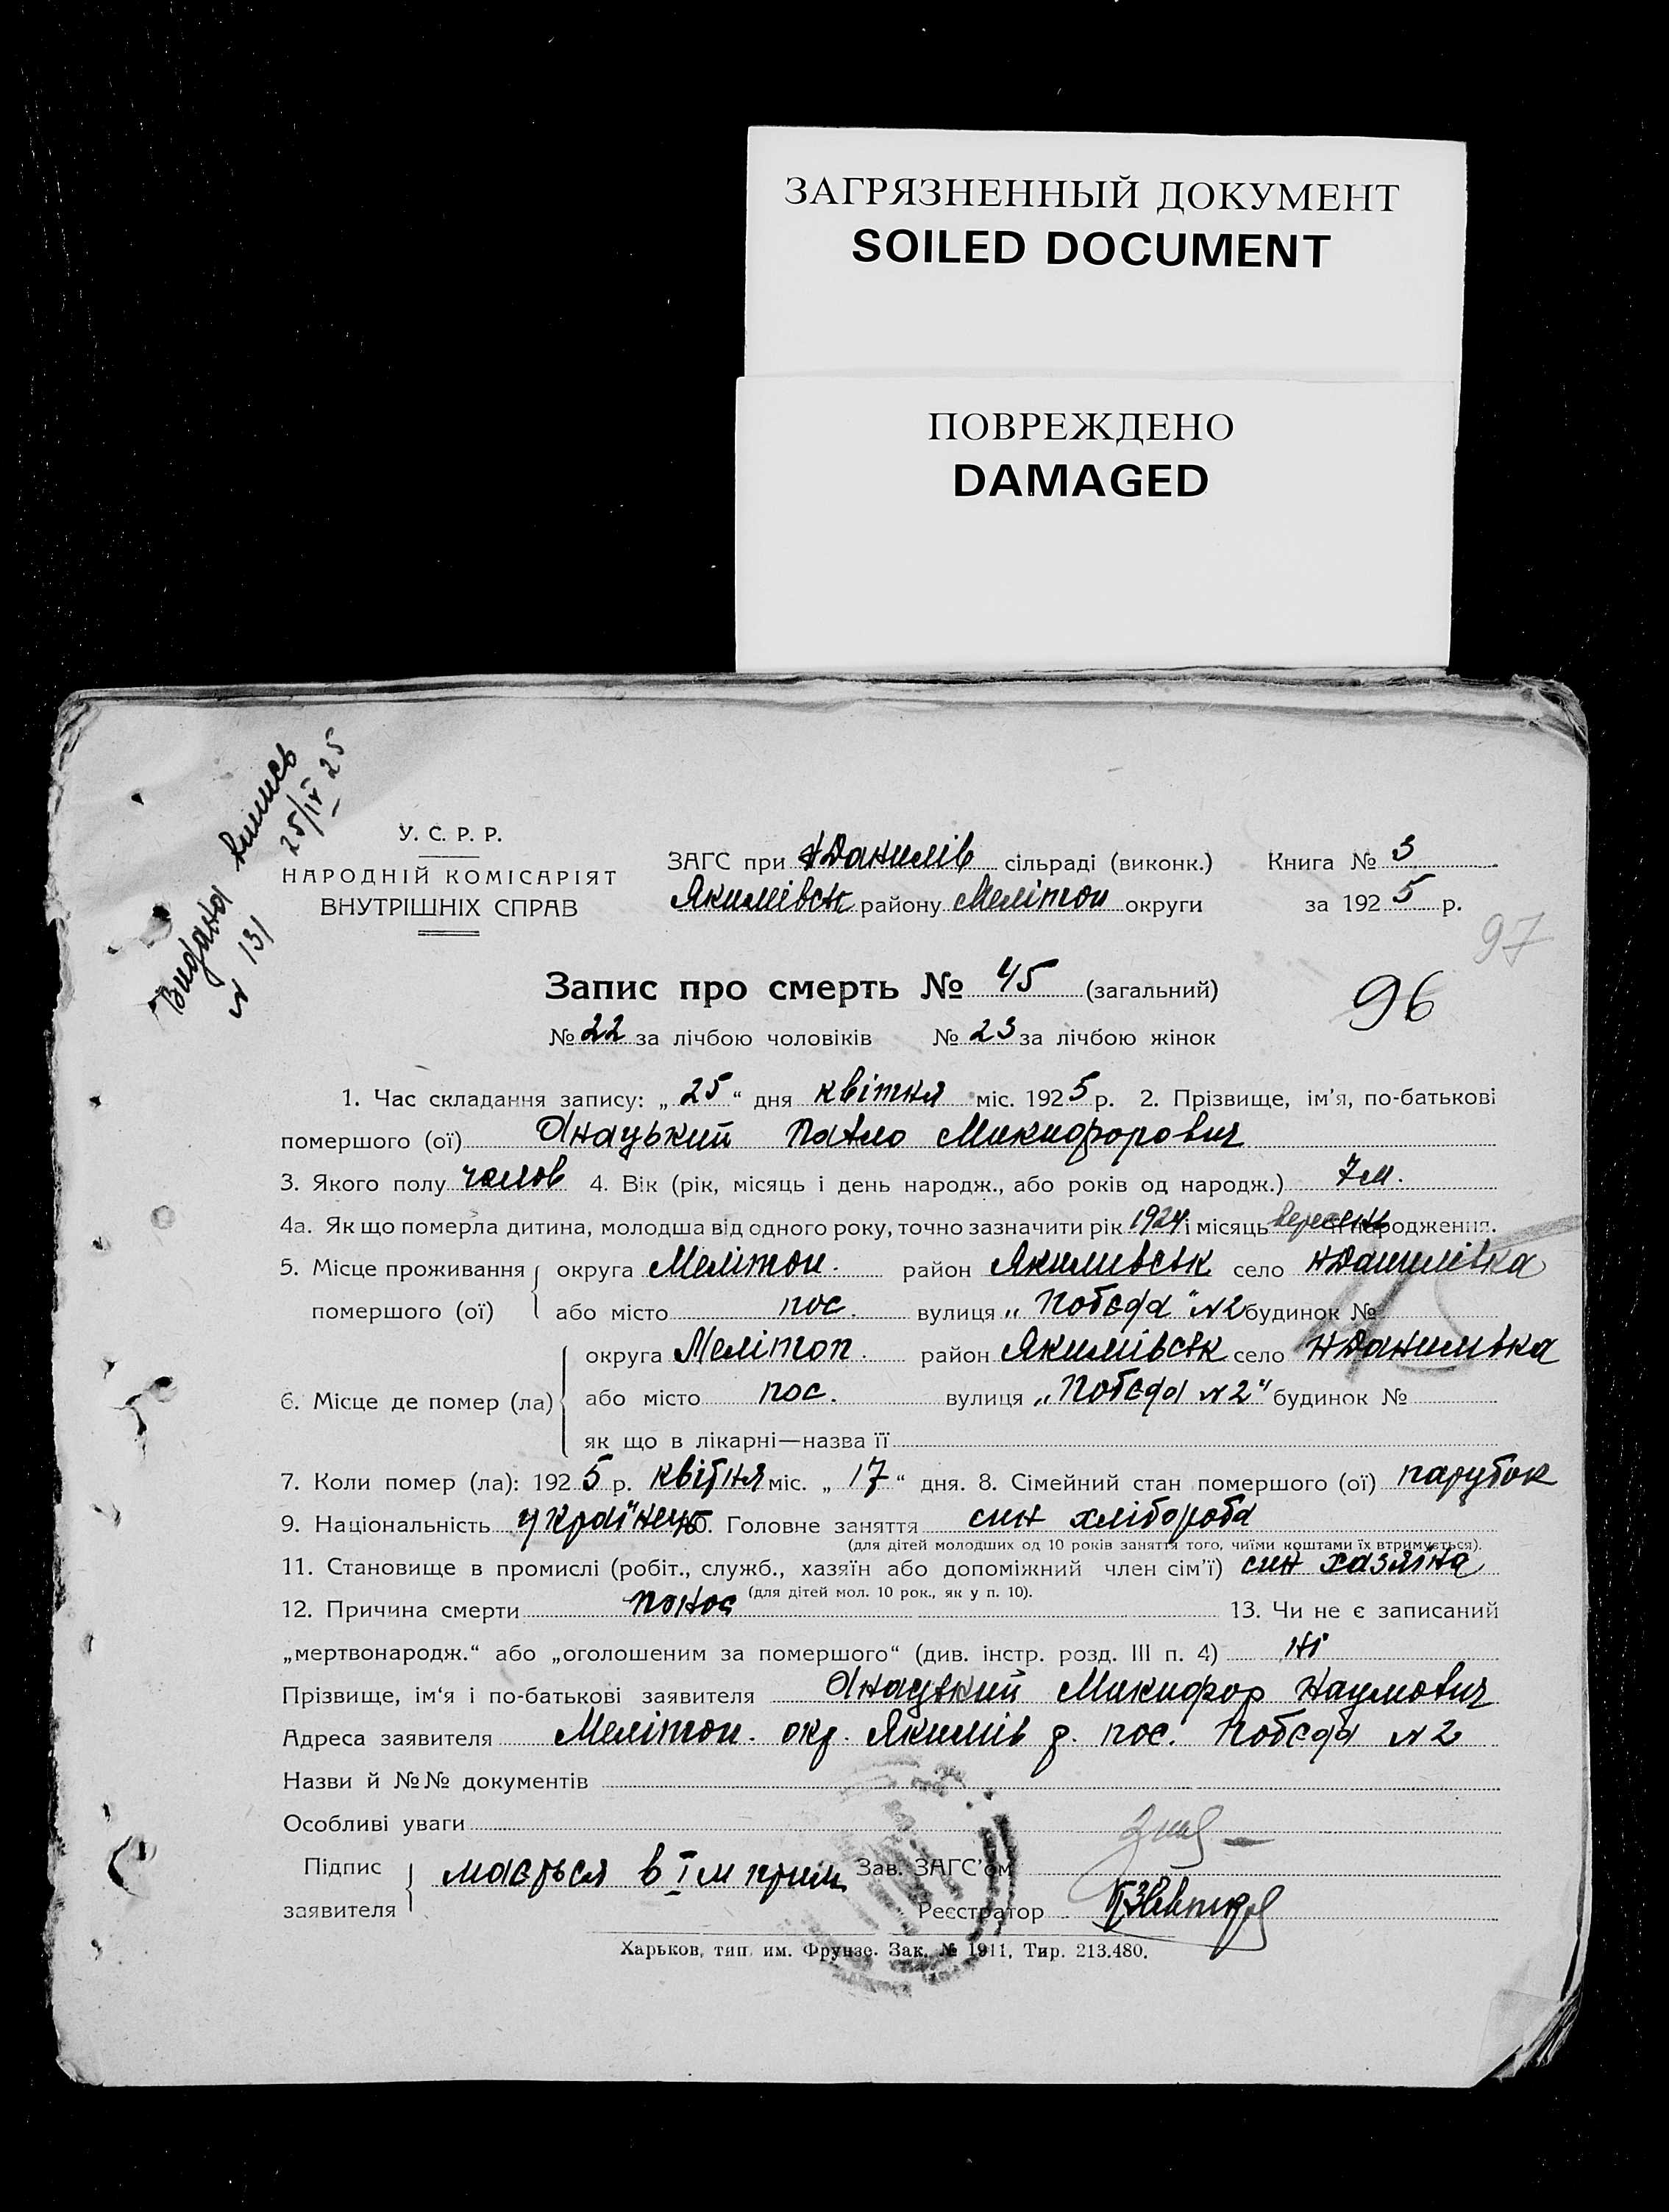 ЗАГРЯЗНЕННЫЙ ДОКУМЕНТ
SOILED DOCUMENT
ПОВРЕЖДЕНО
DAMAGED
Видана випись
№ 131 25/IV 25
У. С. Р. Р.
НАРОДНІЙ КОМІСАРІЯТ
ВНУТРІШНІХ СПРАВ
ЗАГС при НДанилів сільраді (виконк.) Книга № 3
Якимівськ району Мелітоп округи за 1925 р.
97
Запис про смерть № 45 (загальний)
96
№ 22 за лічбою чоловіків № 23 за лічбою жінок
1. Час складання запису: „25“ дня квітня міс. 1925 р. 2. Прізвище, ім'я, по-батькові
помершого (ої) Онацький Павло Микифорович
3. Якого полу чолов 4. Вік (рік, місяць і день народж., або років од народж.) 7 м.
4а. Як що померла дитина, молодша від одного року, точно зазначити рік 1924 і місяць вересень народження.
5. Місце проживання округа Мелітоп. район Якимівськ село НДанилівка
помершого (ої) або місто пос. вулиця „Побєда" №2 будинок №
округа Мелітоп. район Якимівськ село НДанилівка
6. Місце де помер (ла) або місто пос. вулиця „Побєда №2" будинок №
як що в лікарні—назва її
7. Коли помер (ла): 1925 р. квітня міс. „17“ дня. 8. Сімейний стан помершого (ої) парубок
9. Національність українець 10. Головне заняття син хлібороба
(для дітей молодших од 10 років заняття того, чиїми коштами їх втримується).
11. Становище в промислі (робіт., служб., хазяїн або допоміжний член сім'ї) син хазяїна
(для дітей мол. 10 рок., як у п. 10).
12. Причина смерти понос 13. Чи не є записаний
„мертвонародж.“ або „оголошеним за помершого“ (див. інстр. розд. III п. 4) ні
Прізвище, ім‘я і по-батькові заявителя Онацький Микифор Наумович
Адреса заявителя Мелітоп. окр. Якимів р. пос. Побєда №2
Назви й №№ документів
Особливі уваги
Підпис мається в І м прим Зав. ЗАГС'ом
заявителя Реєстратор
Харьков, тип. им. Фрунзе. Зак. № 1911, Тир. 213.480.